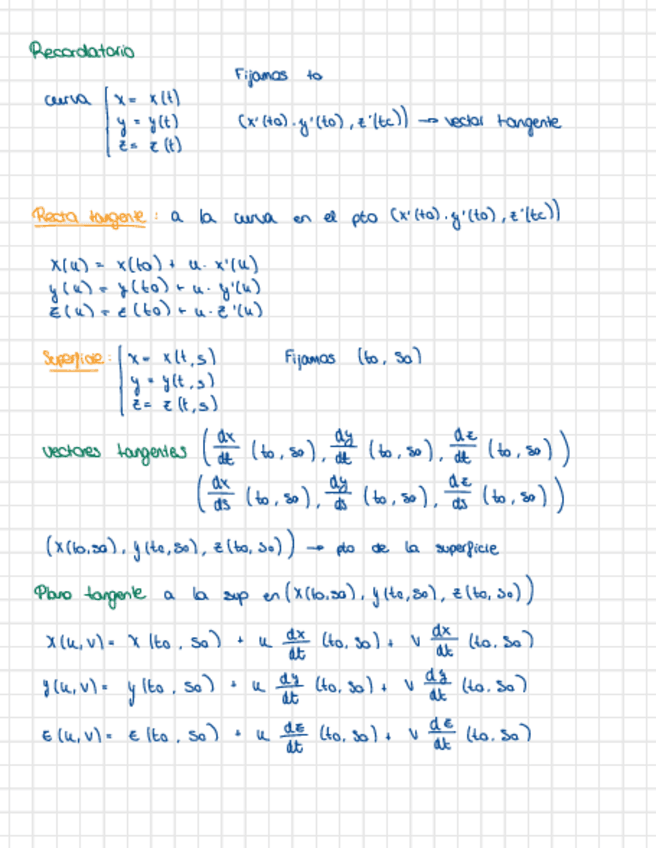 Recordatorio
Fijamos to
curva { x = x(t)
y = y(t)
z = z(t)
(x'(to). y'(to), z'(tc)) → vector tangente
Recta tangente: a la curva en el pto (x'(to). y'(to), z'(tc))
x(u) = x(to) + u. x'(u)
y(u) = y(to) + u. y'(u)
z(u) = z(to) + u. z'(u)
Superficie: { x = x(t,s)
y = y(t,s)
z = z(t,s)
Fijamos (to, so)
vectores tangentes (dx/dt (to, so), dy/dt (to, so), dz/dt (to, so))
(dx/ds (to, so), dy/ds (to, so), dz/ds (to, so))
(x(to,so), y(to,so), z(to,so)) → pto de la superficie
Plano tangente a la sup en (x(to,so), y(to,so), z(to,so))
x(u,v) = x (to, so) + u dx/dt (to, so) + v dx/dt (to. so)
y(u,v) = y (to, so) + u dy/dt (to, so) + v dy/dt (to. so)
z(u,v) = z (to, so) + u dz/dt (to, so) + v dz/dt (to. so)